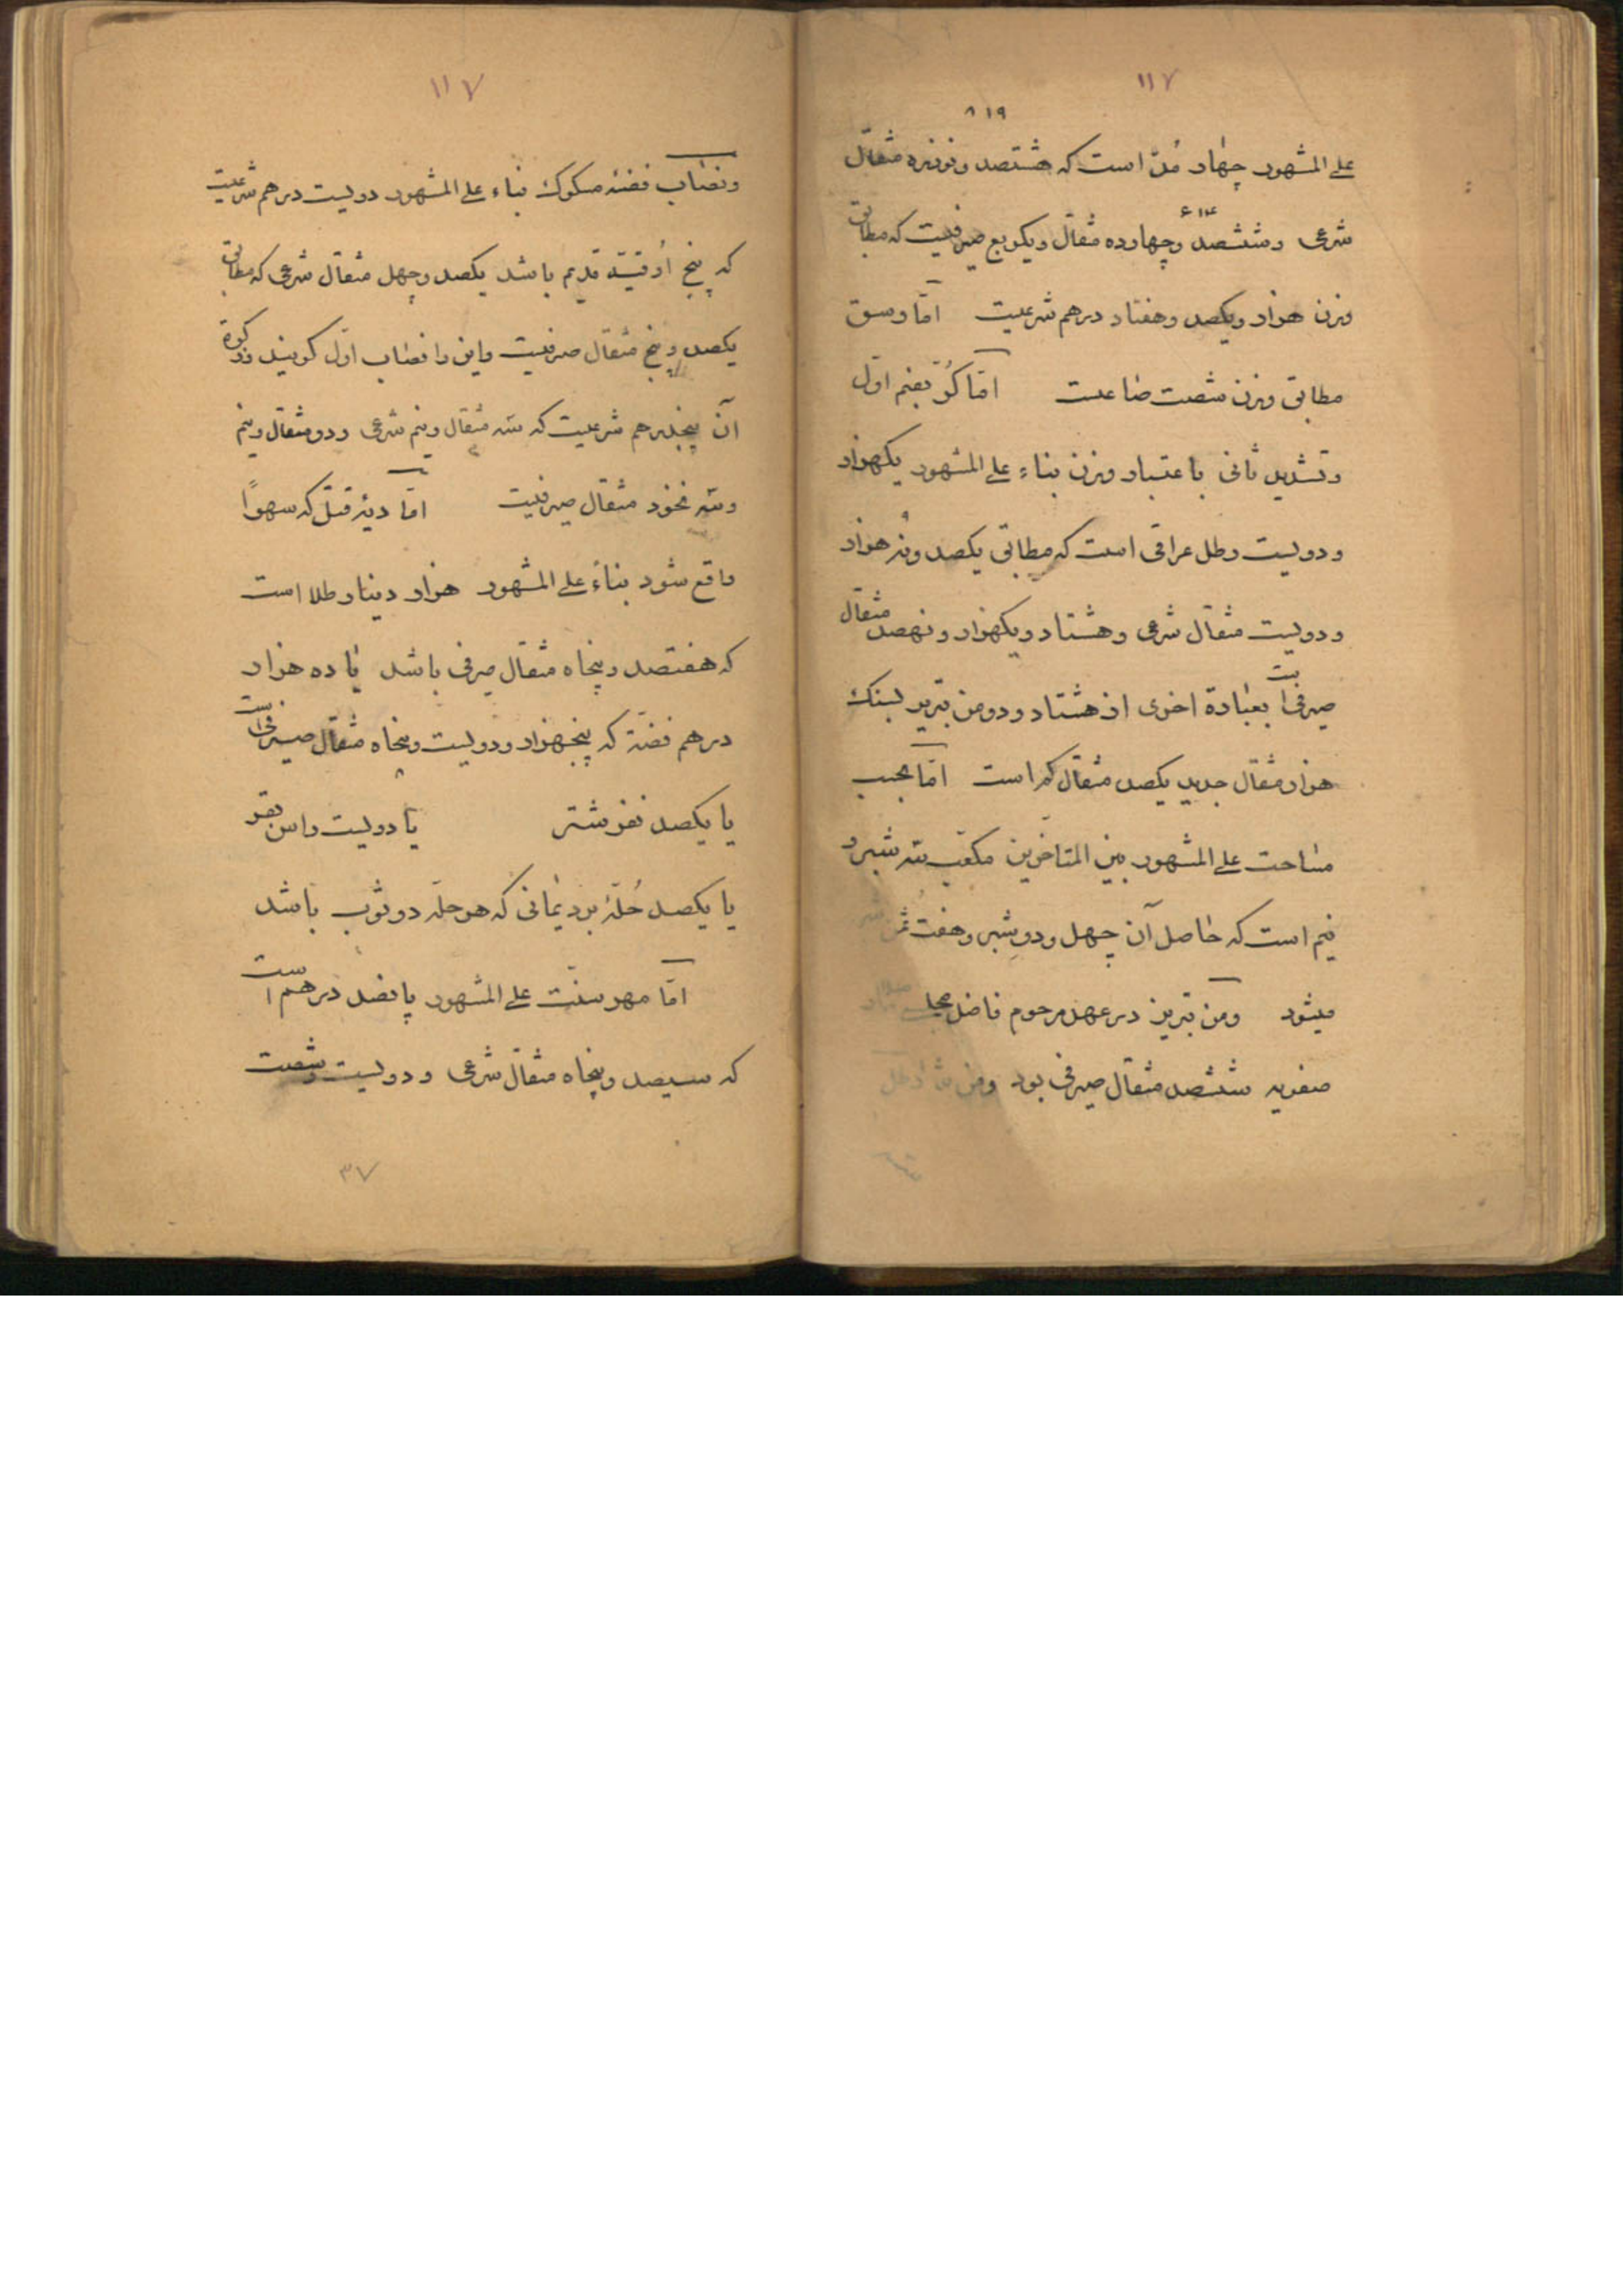 ۱۱۷
۸۱۹
علی المشهور چهار مُدّ است که هشتصد و نوزده مثقال
۶۱۴
شرعی و ششصد و چهارده مثقال و یکربع صیرفیست که مطابق
وزن هزار و یکصد و هفتاد درهم شرعیست امّا وسق
مطابق وزن شصت صاعست امّا کُرّ بضم اوّل
و تشدید ثانی باعتبار وزن بناء علی المشهور یکهزار
و دویست رطل عراقی است که مطابق یکصد و نه هزار
و دویست مثقال شرعی و هشتاد و یکهزار و نهصد مثقال
صیرفی است بعبارة اخری از هشتاد و دو من تبریز بسنک
هزار مثقال جدید یکصد مثقال کم است امّا بحسب
مساحت علی المشهور بین المتاخرین مکعّب سه شبر و
نیم است که حاصل آن چهل و دو شبر و هفت ثمن
میشود و من تبریز در عهد مرحوم فاضل
صفویه ششصد مثقال صیرفی بود و من
۱۱۷
و نصاب فضّه مسکوک بناء علی المشهور دویست درهم شرعیست
که پنج اُوقیّه قدیم باشد یکصد و چهل مثقال شرعی که مطابق
یکصد و پنج مثقال صیرفیست و این را نصاب اوّل کویند و زکوة
آن پنجدرهم شرعیست که سه مثقال و نیم شرعی و دو مثقال و نیم
و سه نخود مثقال صیرفیست امّا دیۀ قتل که سهوًا
واقع شود بناءً علی المشهور هزار دینار طلا است
که هفتصد و پنجاه مثقال صیرفی باشد یا ده هزار
درهم فضّة که پنجهزار و دویست و پنجاه مثقال صیرفی است
یا یکصد نفر شتر یا دویست راس بقر
یا یکصد حُلّۀ برد یمانی که هر حلّه دو ثوب باشد
امّا مهر سنّت علی المشهور پانصد درهم است
که سیصد و پنجاه مثقال شرعی و دویست و شصت
۳۷